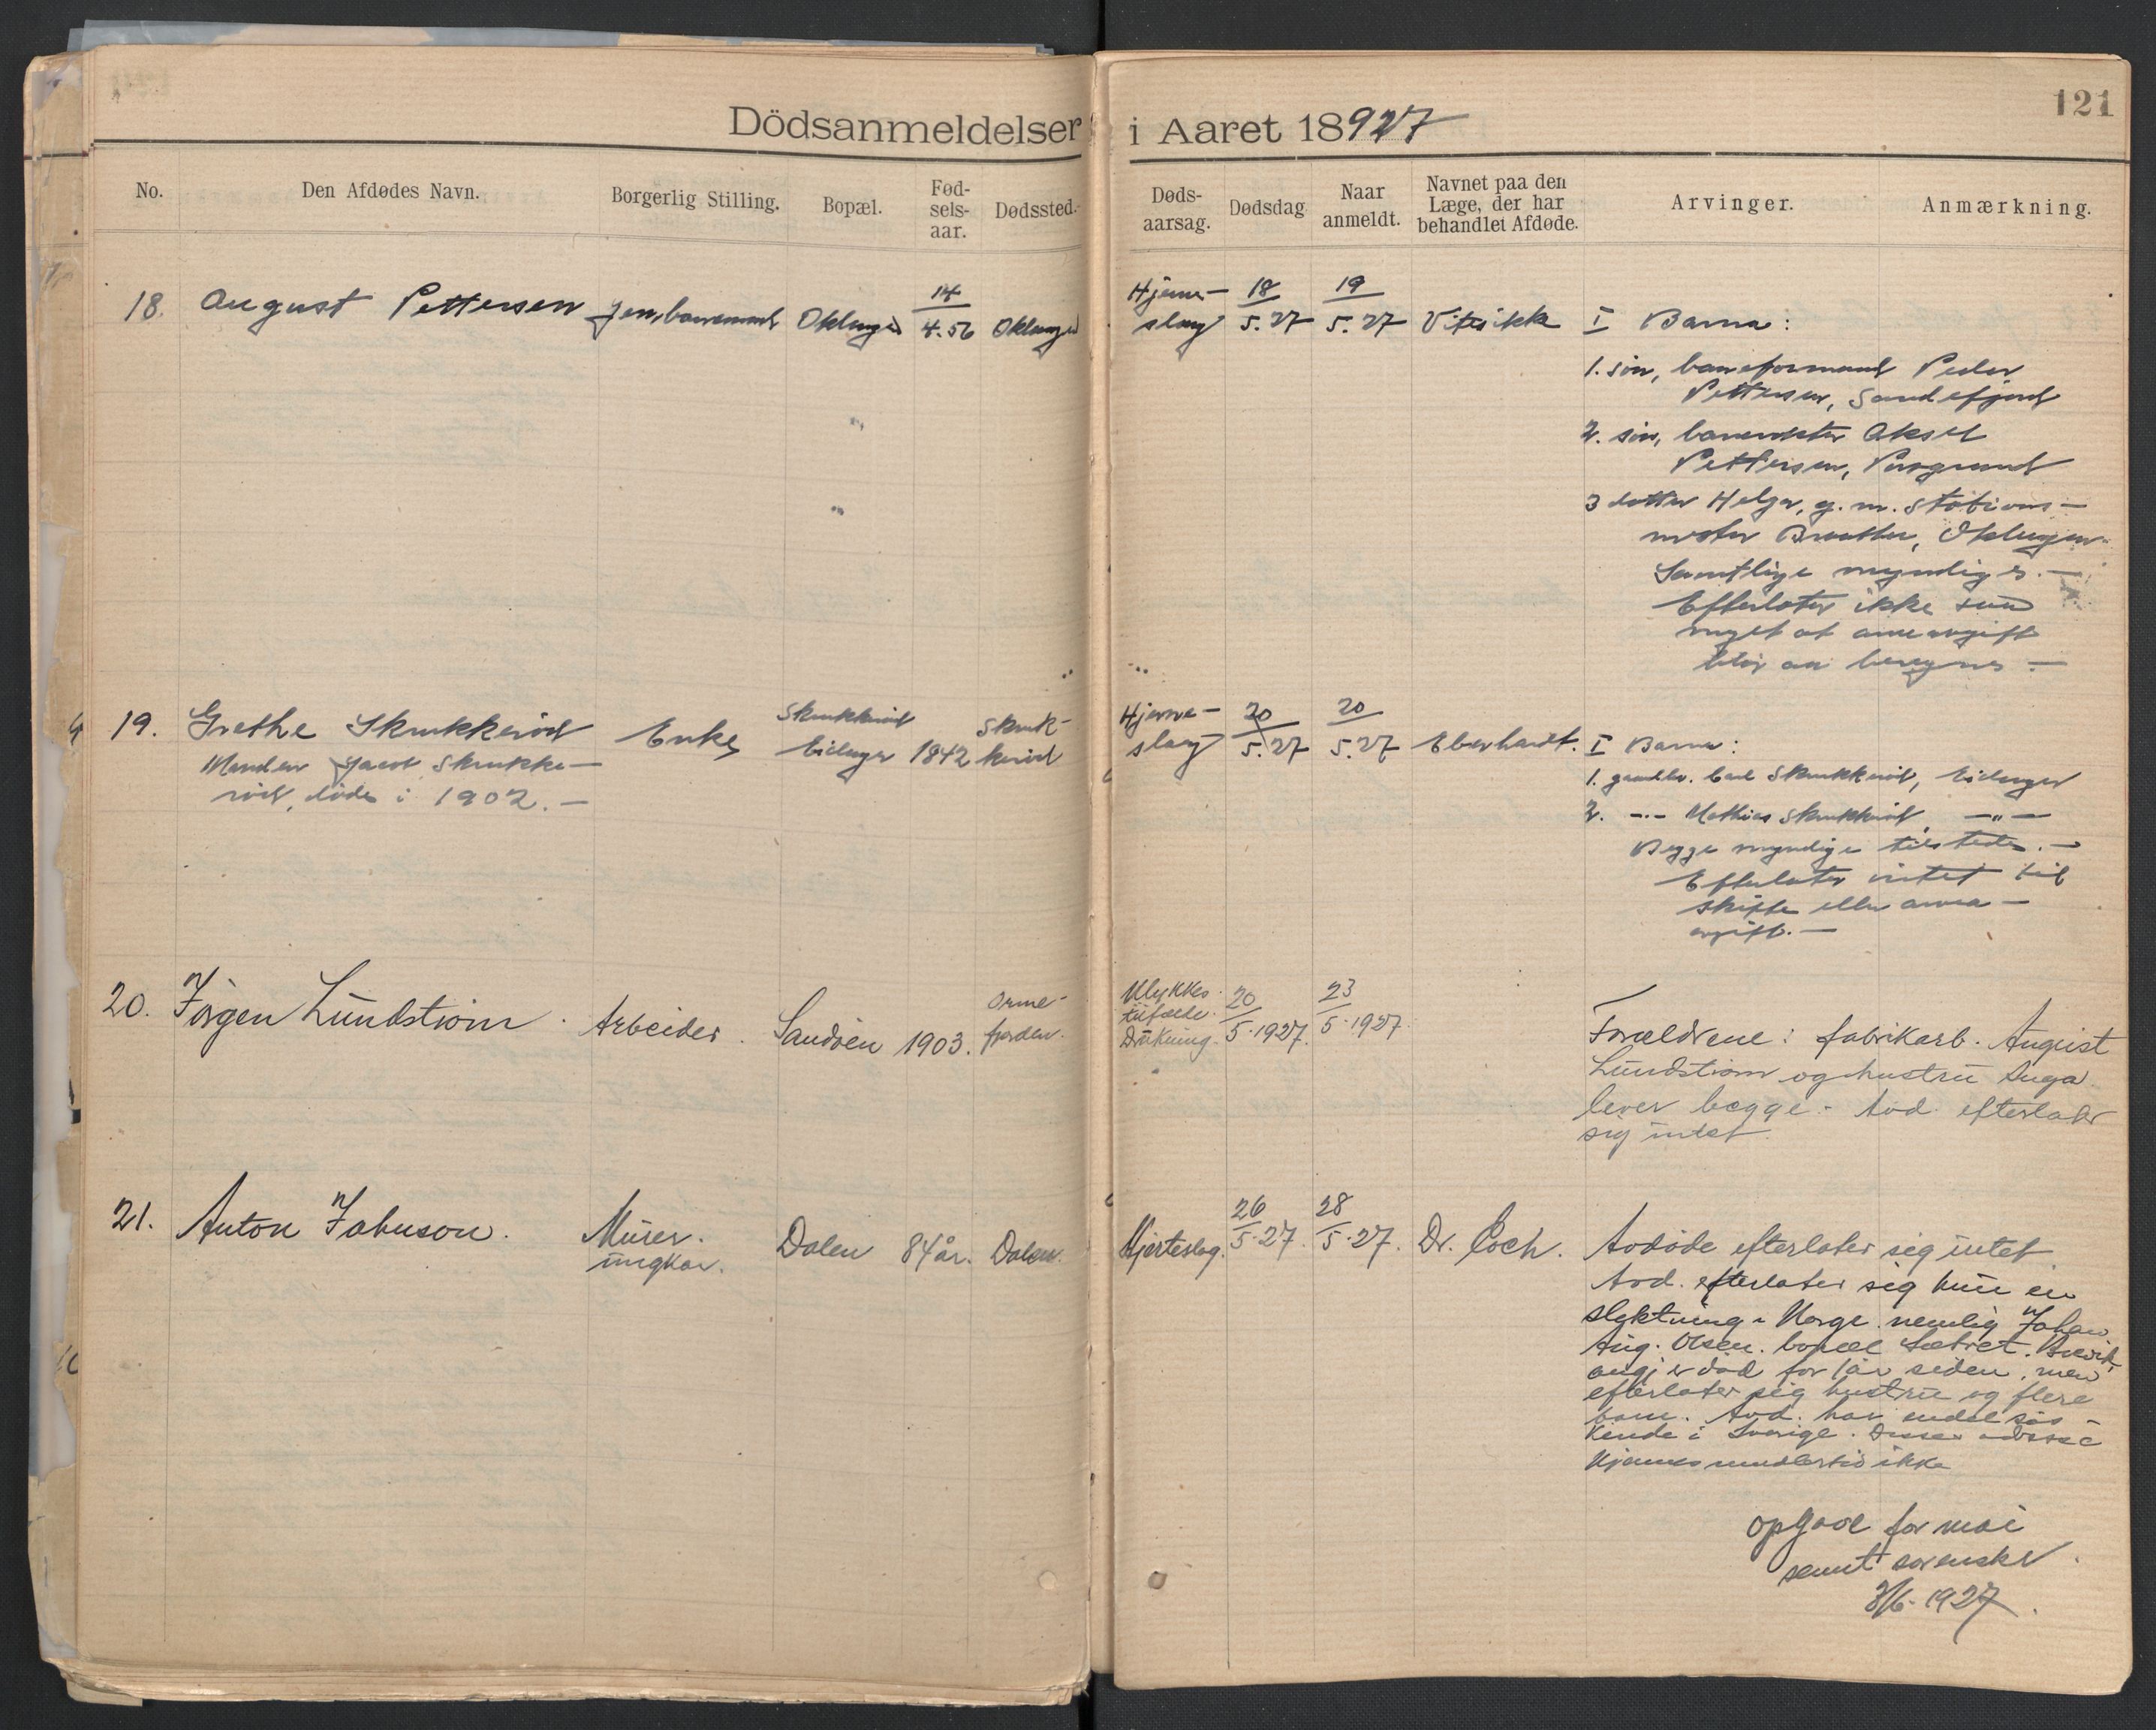 121
Dödsanmeldelser i Aaret 18927
No. Den Afdødes Navn. Borgerlig Stilling. Bopæl. Fød-sels-aar. Dødssted. Døds-aarsag. Dødsdag Naar anmeldt. Navnet paa den Læge, der har behandlet Afdøde. Arvinger. Anmærkning.
18. August Pettersen Jernbanemand Oklungen 14/4.56 Oklungen
Hjerne-
slag 18/5.27 19/5.27 Vites ikke I Barna:
1. søn, baneformand Peder
Pettersen, Sandefjord
2. søn, banevokter Aksel
Pettersen, Porsgrund
3 datter Helga, g. m. stations-
mester Oklungen
Samtlige myndige. —
Efterlater ikke
meget at arveavgift
blir at beregne —
19. Grethe Skrukkerød Enke Skrukkerød
Eidanger 1842 Skruk-
kerød
Manden Jacob Skrukke-
rød, døde i 1902. —
Hjerne-
slag 20/5.27 20/5.27 Eberhardt. I Barna:
1. gaardbr. Carl Skrukkerød, Eidanger
2. -"- Mathias Skrukkerød -"-
Begge myndige tilstede. —
Efterlater intet til
skifte eller arve-
avgift. —
20. Jørgen Lundstrøm. Arbeider. Sandøen 1903. Orme-
fjorden.
Ulykkes
tilfælde.
Drukning. 20/5.1927. 23/5.1927.
Forældrene: fabrikarb. August
Lundstrøm og hustru Inga
lever begge. - Avd. efterlater
sig intet.
21. Anton Johnson. Murer.
ungkar. Dalen 84 år. Dalen.
Hjerteslag. 26/5.27. 28/5.27. Dr. Coch. Avdøde efterlater sig intet
Avd. efterlater sig kun en
slektning i Norge. nemlig Johan
Aug. Olsen. bopæl Sætret. Brevik,
død for 1 år siden, men
efterlater sig hustru og flere
barn. Avd. har endel søs-
kende i Sverige. Disses adresse
kjennes imidlertid ikke
Opgave for mai
sendt sorenskr.
3/6-1927.